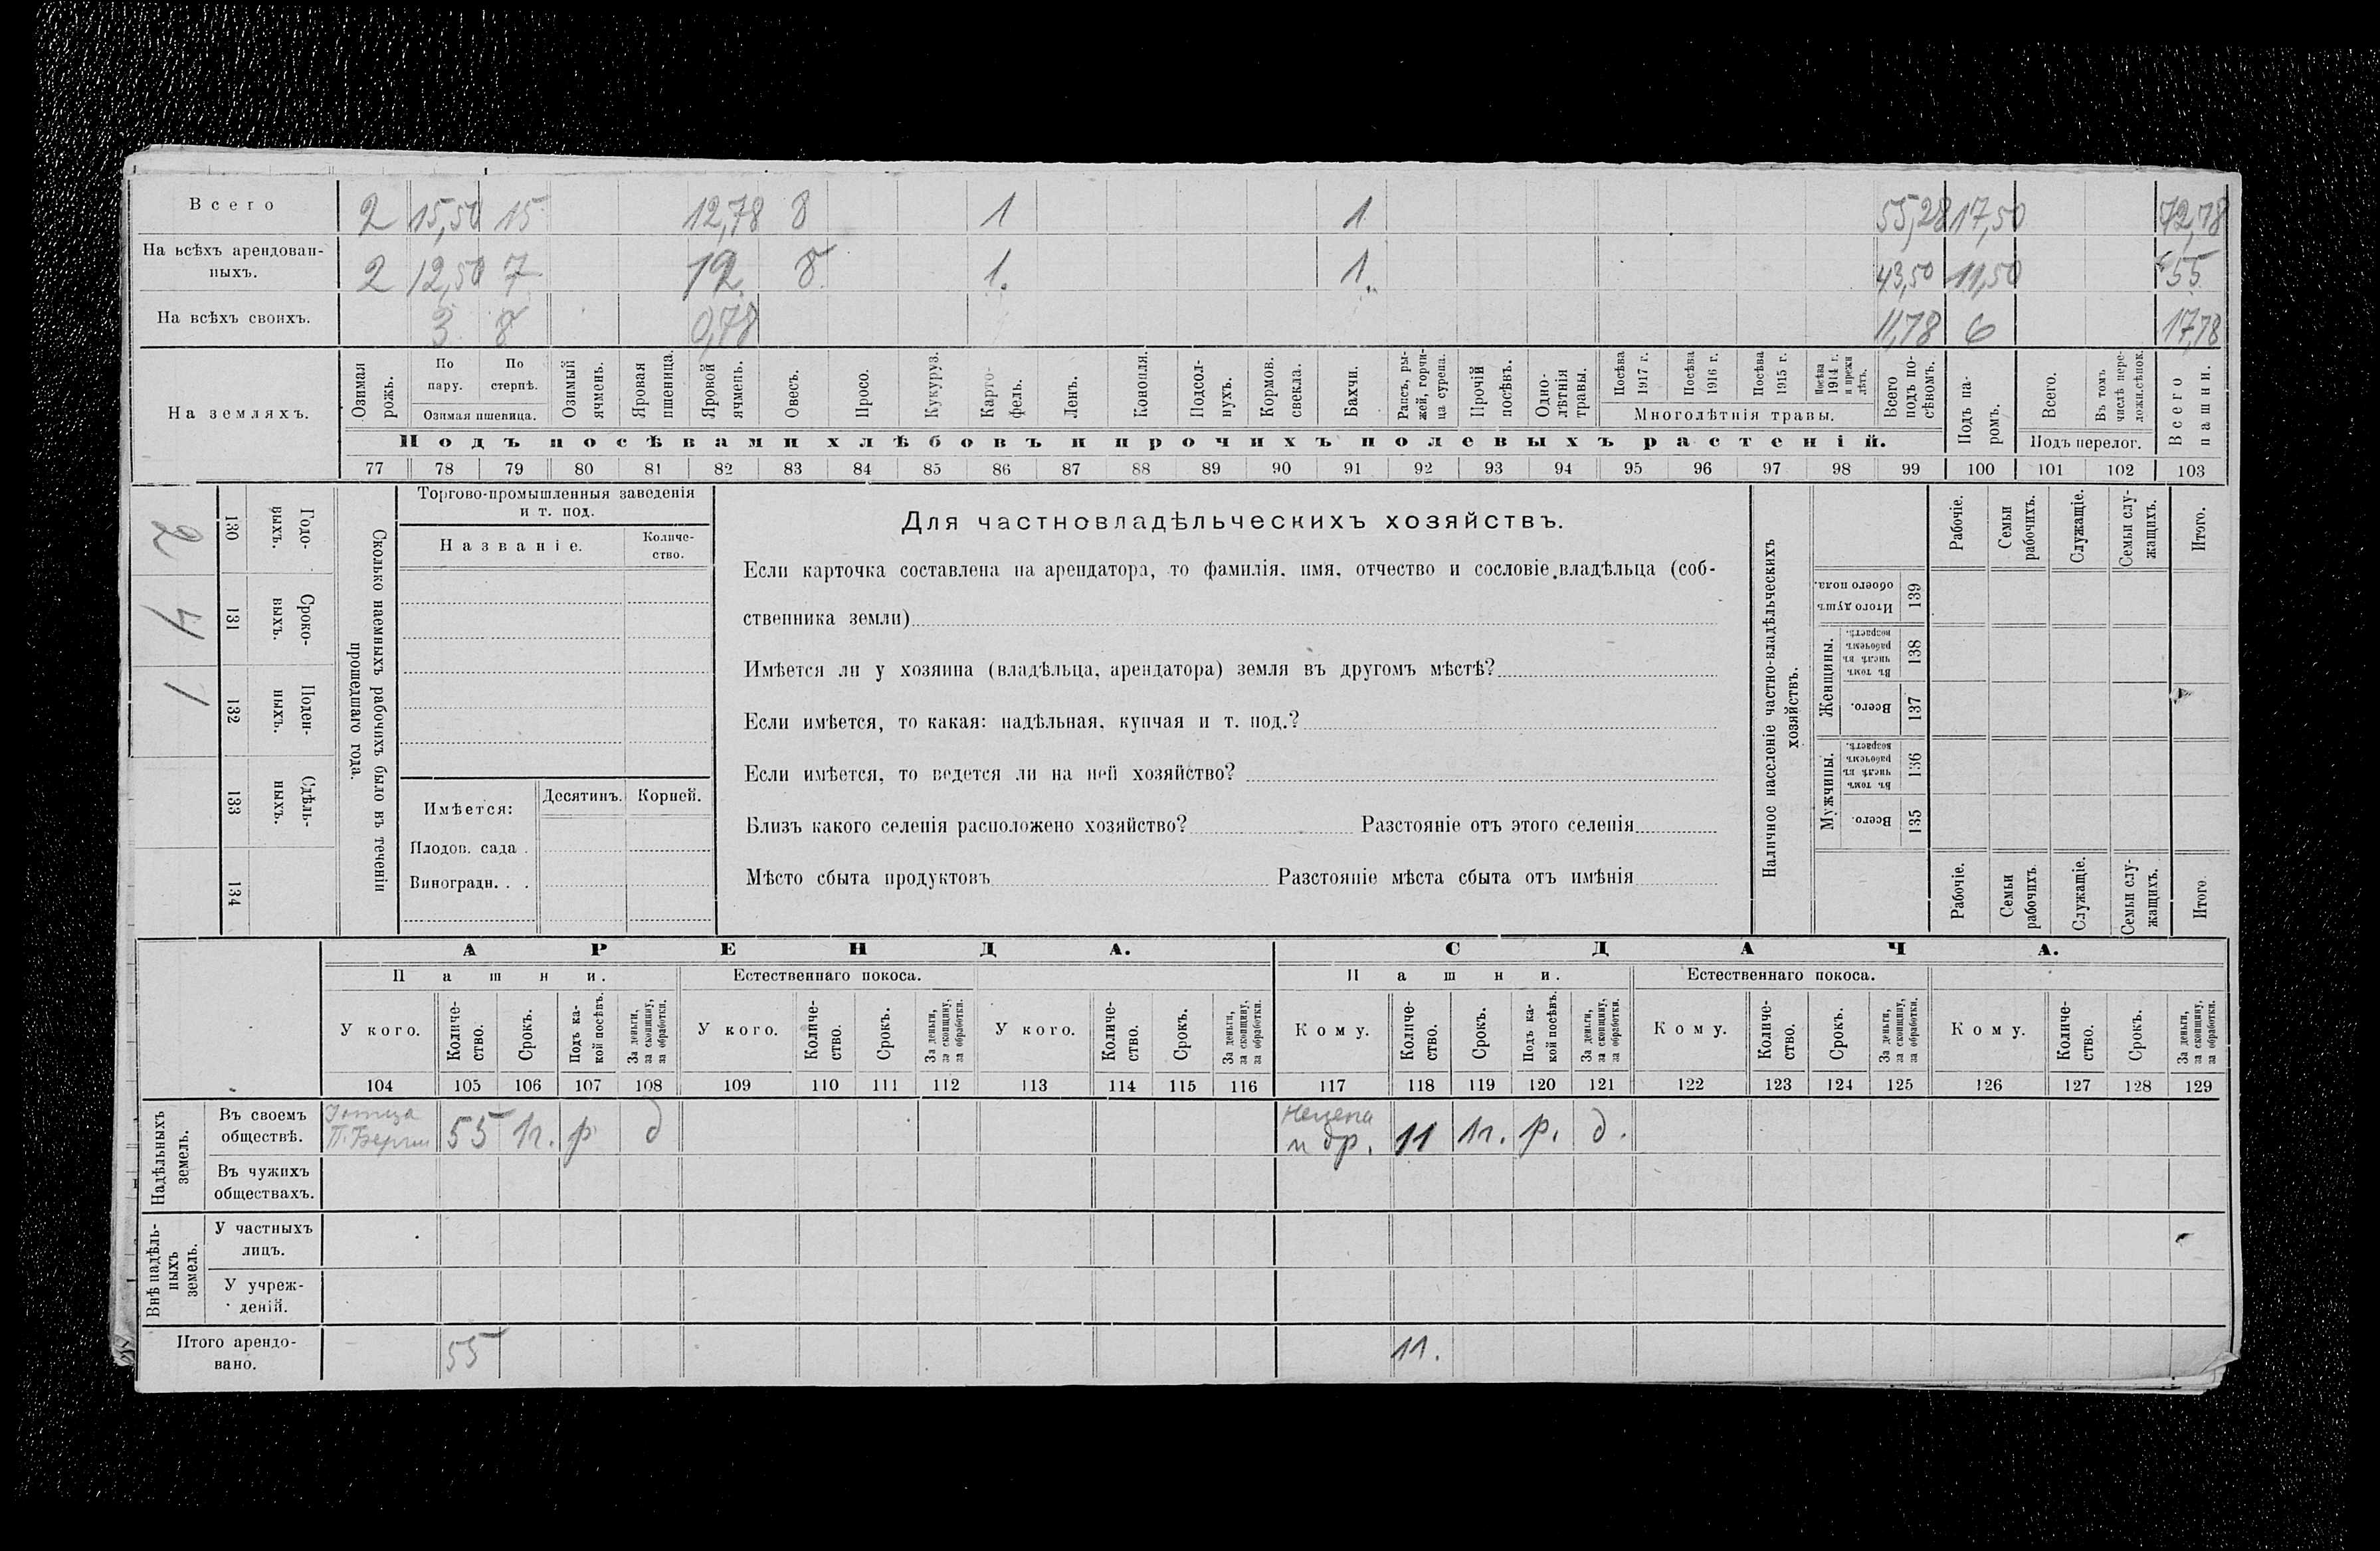 Всего 2 15,50 15 12,78 8 1 1 55,28 17,50 72,78
На всѣхъ арендован-
ныхъ. 2 12,50 7 12 8 1. 1. 43,50 11,50 55
На всѣхъ своихъ. 3 8 0,78 11,78 6 17,78
На земляхъ.
Озимая рожь.
По пару.
По стернѣ.
Озимая пшеница.
Озимый ячмень.
Яровая пшеница.
Яровой ячмень.
Овесъ.
Просо.
Кукуруз.
Карто-
фель.
Ленъ.
Конопля.
Подсол-
нухъ.
Кормов. свекла.
Бахчи.
Рапсъ, ры-
жей, горчи-
ца сурепа.
Прочій посѣвъ.
Одно-
лѣтнія травы.
Посѣва 1917 г.
Посѣва 1916 г.
Посѣва 1915 г.
Посѣва 1914 г. и прежн лѣтъ.
Многолѣтнія травы.
Всего подъ по-
сѣвомъ.
Подъ па-
ромъ.
Всего.
Въ томъ числѣ пере-
ложн.сѣнок.
Подъ перелог.
Всего пашни.
Подъ посѣвами хлѣбовъ и прочихъ полевыхъ растеній.
77 78 79 80 81 82 83 84 85 86 87 88 89 90 91 92 93 94 95 96 97 98 99 100 101 102 103
Сколько наемныхъ рабочихъ было въ теченіи
прошедшаго года.
Годо-
выхъ. 130 2
Сроко-
выхъ. 131 4
Поден-
ныхъ. 132 1
Сдѣль-
ныхъ. 133
134
Торгово-промышленныя заведенія
и т. под.
Названіе. Количе-
ство.
Имѣется: Десятинъ. Корней.
Плодов. сада .
Виноградн. . .
Для частновладѣльческихъ хозяйствъ.
Если карточка составлена на арендатора, то фамилія, имя, отчество и сословіе владѣльца (соб-
ственника земли)
Имѣется ли у хозяина (владѣльца, арендатора) земля въ другомъ мѣстѣ?
Если имѣется, то какая: надѣльная, купчая и т. под.?
Если имѣется, то ведется ли на ней хозяйство?
Близъ какого селенія расположено хозяйство? Разстояніе отъ этого селенія
Мѣсто сбыта продуктовъ Разстояніе мѣста сбыта отъ имѣнія
Наличное населеніе частно-владѣльческихъ
хозяйствъ.
Рабочіе.
Семьи рабочихъ.
Служащіе.
Семьи слу-
жащихъ.
Итого.
Итого душъ обоего пола. 139
Женщины.
Въ томъ числѣ въ рабочемъ возрастѣ. 138
Всего. 137
Мужчины.
Въ томъ числѣ въ рабочемъ возрастѣ. 136
Всего. 135
Рабочіе.
Семьи рабочихъ
Служащіе.
Семьи слу-
жащихъ.
Итого
АРЕНДА. СДАЧА.
Пашни. Естественнаго покоса. Пашни. Естественнаго покоса.
У кого.
Количе-
ство.
Срокъ.
Подъ ка-
кой посѣвъ.
За деньги, за скопщину, за обработки.
У кого.
Количе-
ство.
Срокъ.
За деньги, за скопщину, за обработки.
У кого.
Количе-
ство.
Срокъ.
За деньги, за скопщину, за обработки.
Кому.
Количе-
ство.
Срокъ.
Подъ ка-
кой посѣвъ.
За деньги, за скопщину, за обработки.
Кому.
Количе-
ство.
Срокъ.
За деньги, за скопщину, за обработки.
Кому.
Количе-
ство.
Срокъ.
За деньги, за скопщину, за обработки.
104 105 106 107 108 109 110 111 112 113 114 115 116 117 118 119 120 121 122 123 124 125 126 127 128 129
Надѣльныхъ земель.
Въ своемъ
обществѣ. 55 1г. р д и др. 11 1г. р. д.
Въ чужихъ
обществахъ.
Внѣ надѣль-
ныхъ земель.
У частныхъ
лицъ.
У учреж-
деній.
Итого арендо-
вано. 55 11.